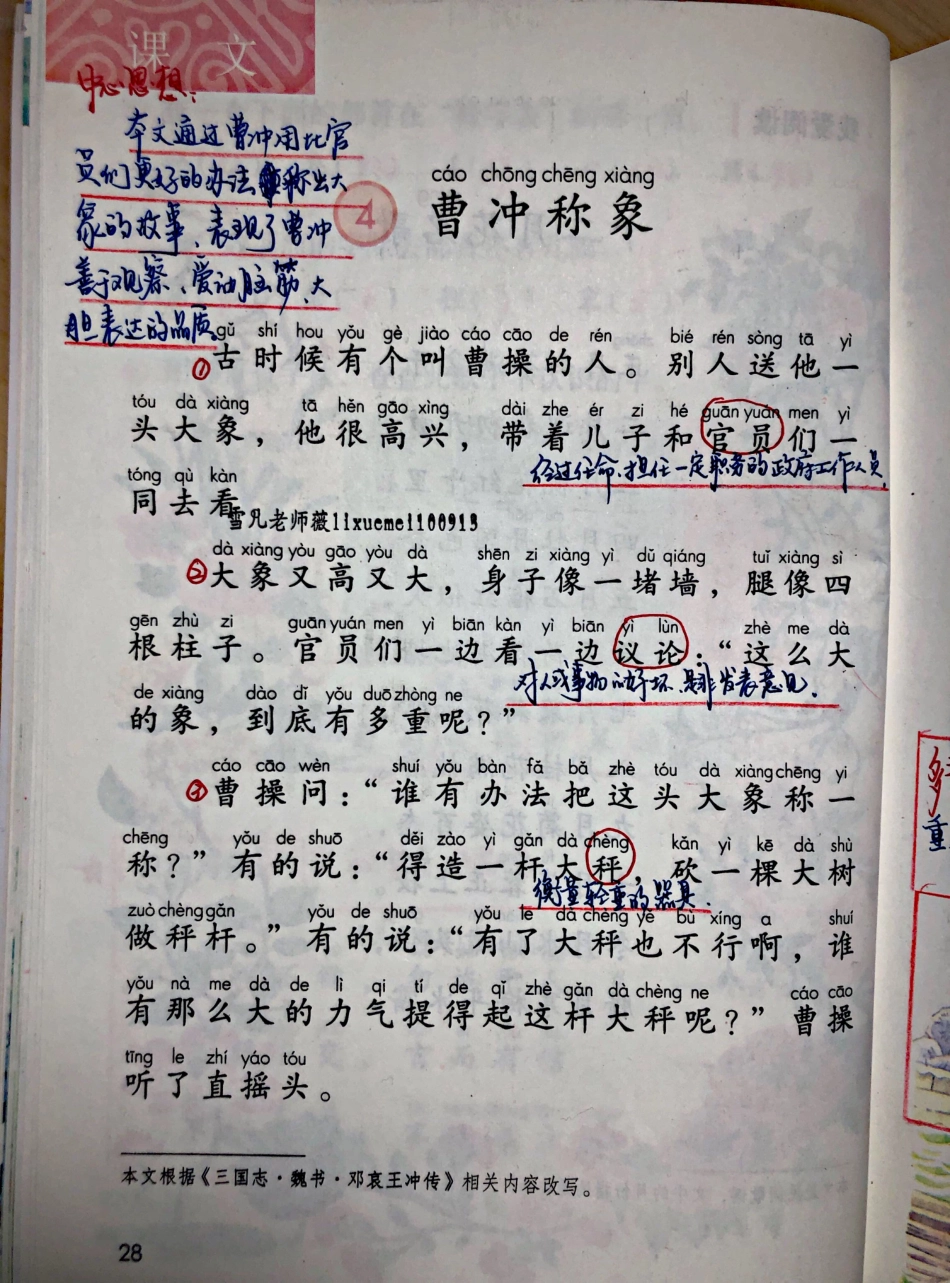 课 文
中心思想:
本文通过曹冲用比官
员们更好的办法称出大
象的故事、表现了曹冲
善于观察、爱动脑筋、大
胆表达的品质。
cáo chōng chēng xiàng
4 曹冲称象
gǔ shí hou yǒu gè jiào cáo cāo de rén bié rén sòng tā yì
①古时候有个叫曹操的人。别人送他一
tóu dà xiàng tā hěn gāo xìng dài zhe ér zi hé guān yuán men yì
头大象，他很高兴，带着儿子和官员们一
经过任命、担任一定职务的政府工作人员
tóng qù kàn
同去看
雪凡老师薇lixuemei1100913
dà xiàng yòu gāo yòu dà shēn zi xiàng yì dǔ qiáng tuǐ xiàng sì
②大象又高又大，身子像一堵墙，腿像四
gēn zhù zi guān yuán men yì biān kàn yì biān yì lùn zhè me dà
根柱子。官员们一边看一边议论：“这么大
对人或事物的好坏、是非发表意见.
de xiàng dào dǐ yǒu duō zhòng ne
的象，到底有多重呢？”
cáo cāo wèn shuí yǒu bàn fǎ bǎ zhè tóu dà xiàng chēng yi
③曹操问：“谁有办法把这头大象称一
chēng yǒu de shuō děi zào yì gǎn dà chèng kǎn yì kē dà shù
称？”有的说：“得造一杆大秤，砍一棵大树
衡量轻重的器具.
zuò chèng gǎn yǒu de shuō yǒu le dà chèng yě bù xíng a shuí
做秤杆。”有的说：“有了大秤也不行啊，谁
yǒu nà me dà de lì qi tí de qǐ zhè gǎn dà chèng ne cáo cāo
有那么大的力气提得起这杆大秤呢？”曹操
tīng le zhí yáo tóu
听了直摇头。
本文根据《三国志·魏书·邓哀王冲传》相关内容改写。
28
重